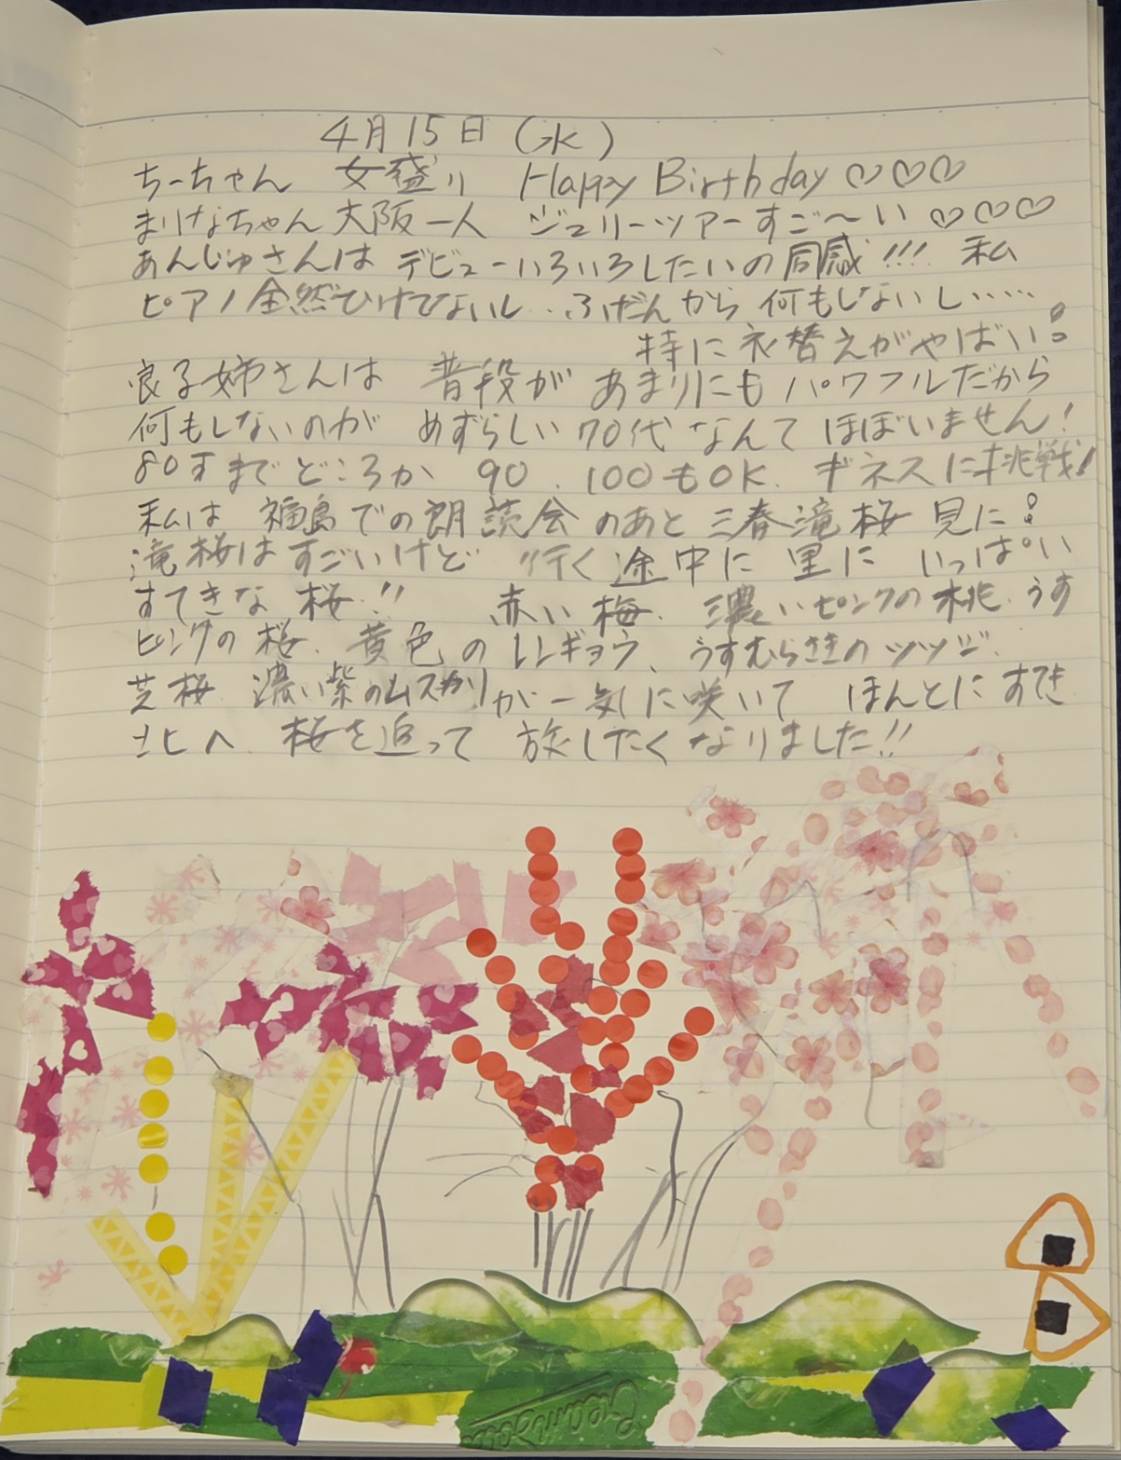 4月15日(水)
ちーちゃん 女盛り Happy Birthday ♡♡♡
まりなちゃん 大阪一人 ジュリーツアーすご〜い ♡♡♡
あんじゅさんは デビューいろいろしたいの同感!!! 私
ピアノ全然ひけてないし‥ふだんから 何もしないし‥‥‥
特に衣替えがやばい!
良子姉さんは 普段が あまりにもパワフルだから
何もしないのが めずらしい 70代なんて ほぼいません!
80才までどころか 90、100もOK. ギネスに挑戦!
私は 福島での朗読会のあと 三春滝桜 見に!
滝桜はすごいけど 行く途中に 里に いっぱい
すてきな 桜!! 赤い梅、濃いピンクの桃、うす
ピンクの桜、黄色のレンギョウ、うすむらさきのツツジ、
芝桜、濃い紫のムスカリが一気に咲いて ほんとにすてき
北へ 桜を追って 旅したくなりました!!